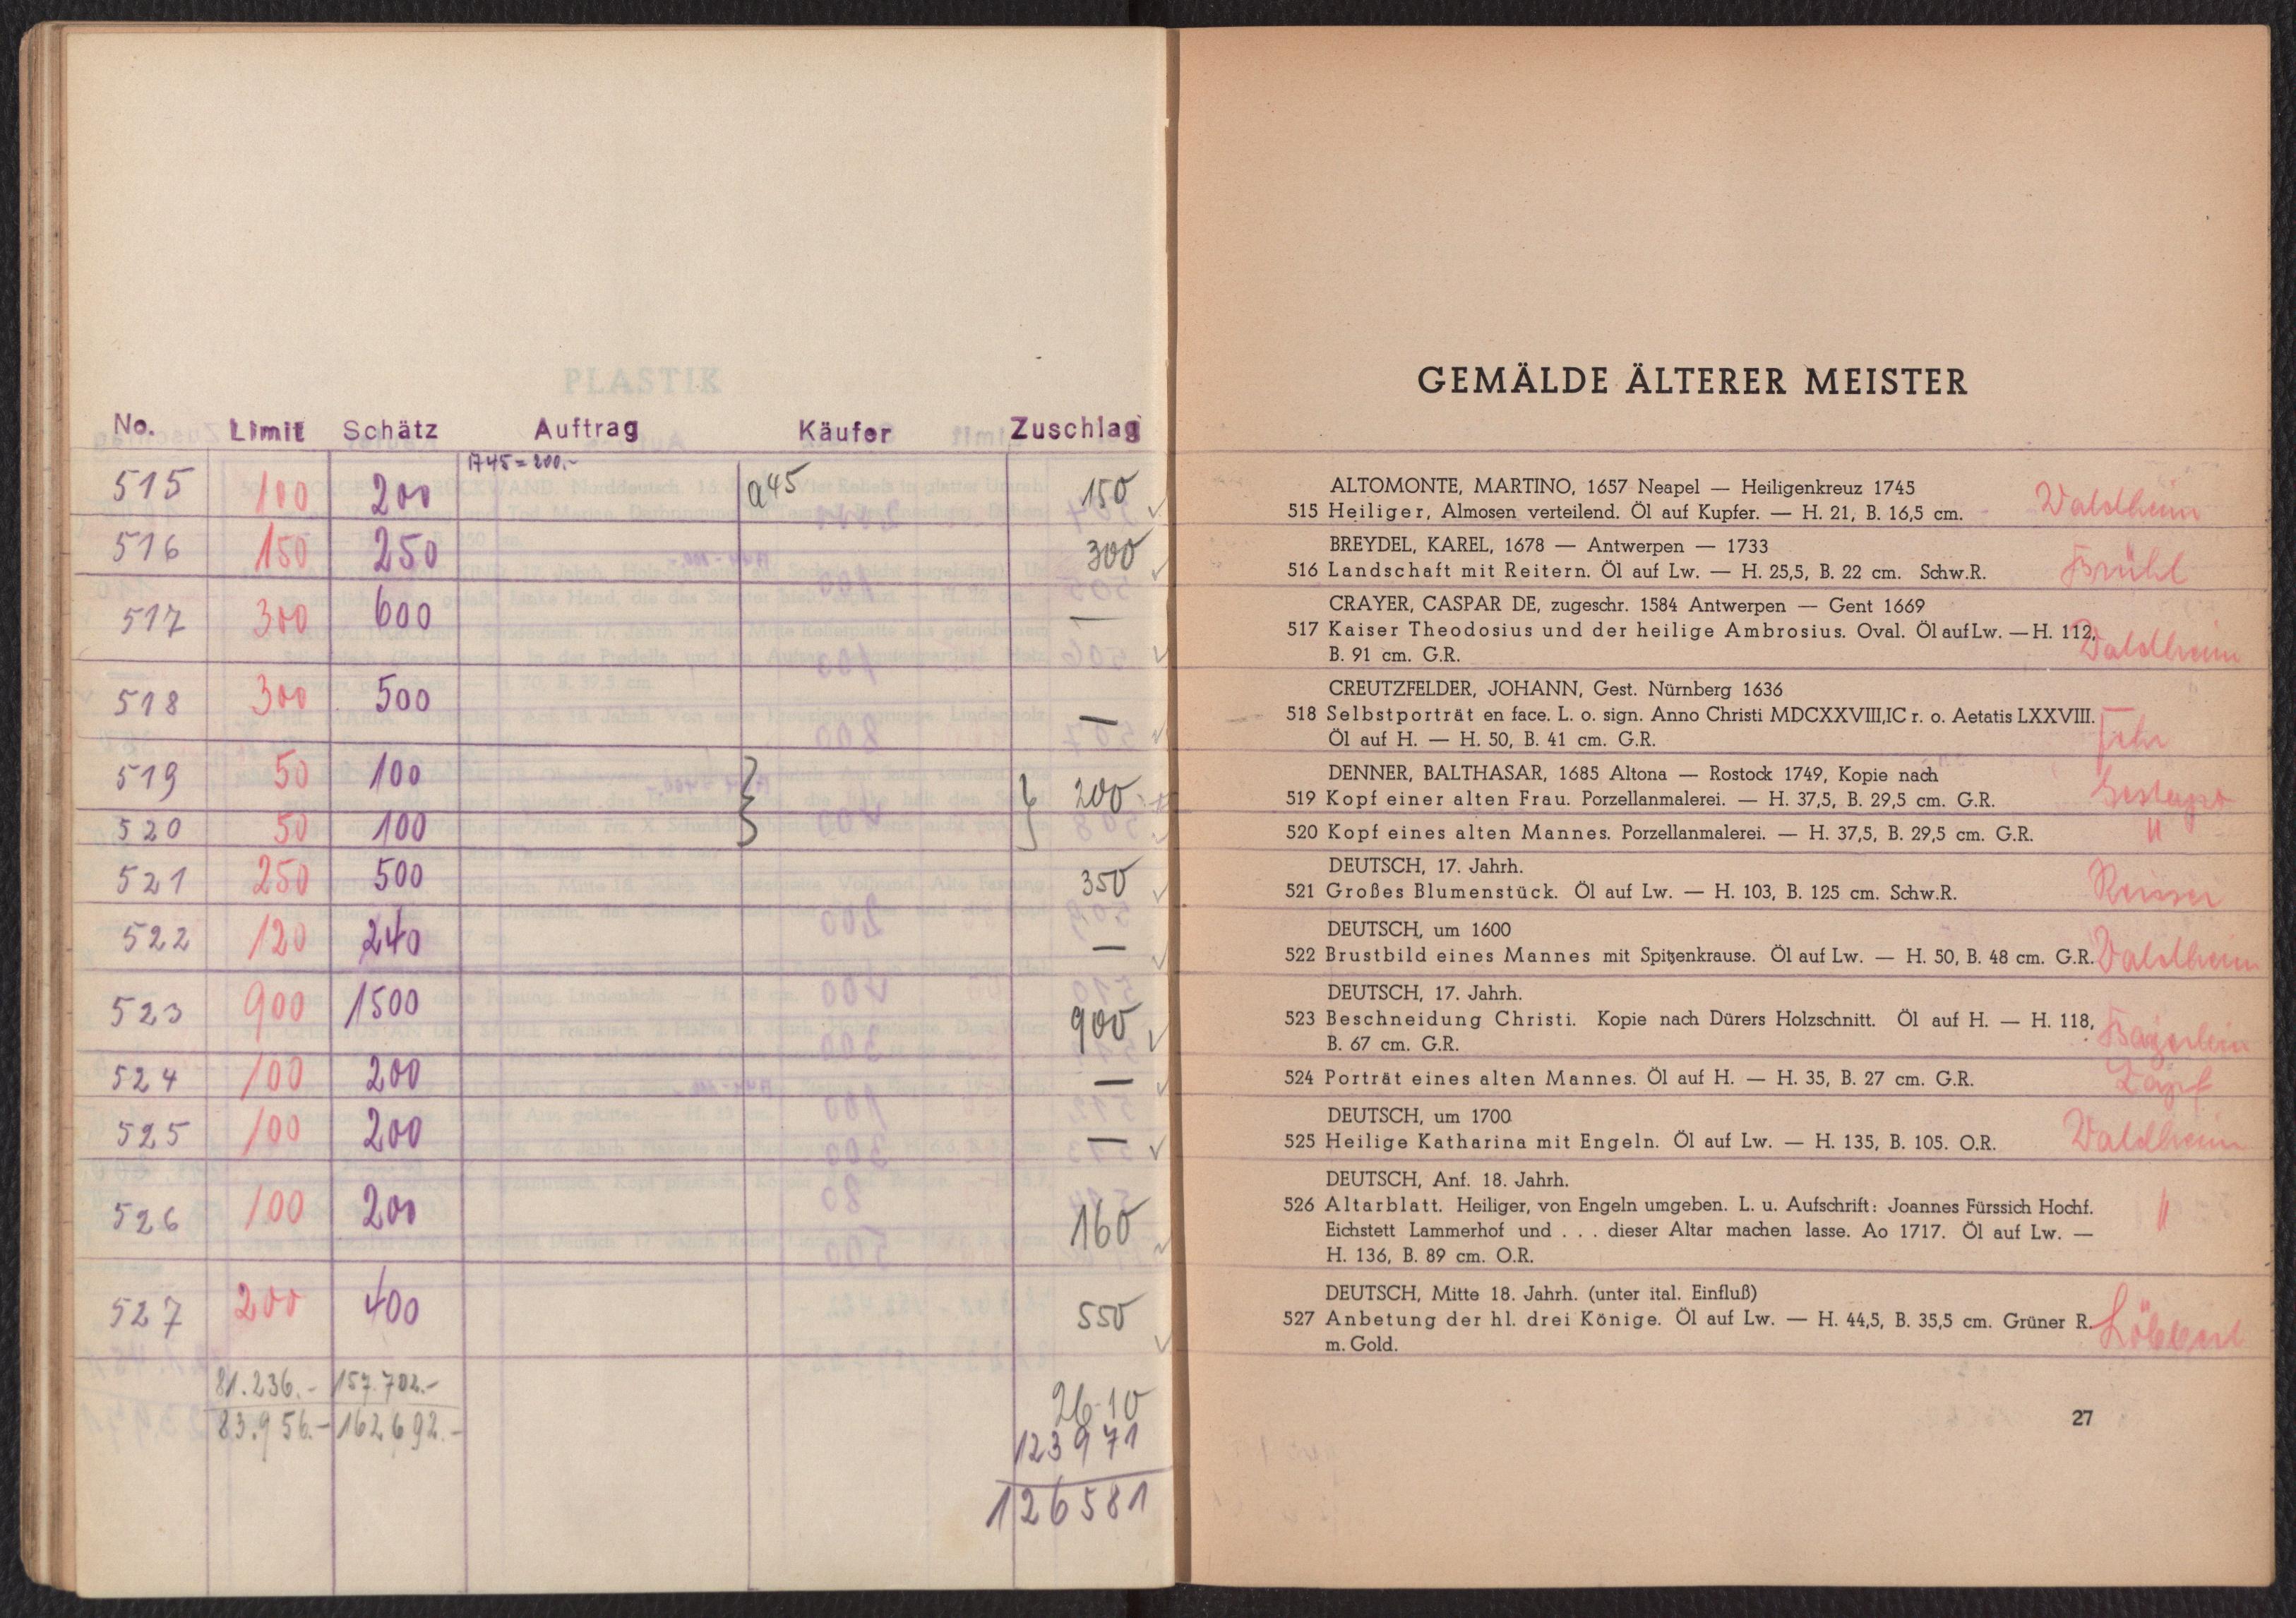 PLASTIK
No. Limit Schätz Auftrag Käufer Zuschlag
515 100 200 A45=200.- a45 150
516 150 250 300
517 300 600 —
518 300 500 —
519 50 100 200
520 50 100
521 250 500 350
522 120 240 —
523 900 1500 900
524 100 200 —
525 100 200 —
526 100 200 160
527 200 400 550
81.236.- 157.702.-
83.956.- 162692.-
26-10
123971
126581
GEMÄLDE ÄLTERER MEISTER
ALTOMONTE, MARTINO, 1657 Neapel — Heiligenkreuz 1745
515 Heiliger, Almosen verteilend. Öl auf Kupfer. — H. 21, B. 16,5 cm. Waldheim
BREYDEL, KAREL, 1678 — Antwerpen — 1733
516 Landschaft mit Reitern. Öl auf Lw. — H. 25,5, B. 22 cm. Schw.R. Brühl
CRAYER, CASPAR DE, zugeschr. 1584 Antwerpen — Gent 1669
517 Kaiser Theodosius und der heilige Ambrosius. Oval. Öl auf Lw. — H. 112,
B. 91 cm. G.R. Waldheim
CREUTZFELDER, JOHANN, Gest. Nürnberg 1636
518 Selbstporträt en face. L. o. sign. Anno Christi MDCXXVIII,IC r. o. Aetatis LXXVIII.
Öl auf H. — H. 50, B. 41 cm. G.R.
DENNER, BALTHASAR, 1685 Altona — Rostock 1749, Kopie nach
519 Kopf einer alten Frau. Porzellanmalerei. — H. 37,5, B. 29,5 cm. G.R. Gestapo
520 Kopf eines alten Mannes. Porzellanmalerei. — H. 37,5, B. 29,5 cm. G.R. "
DEUTSCH, 17. Jahrh.
521 Großes Blumenstück. Öl auf Lw. — H. 103, B. 125 cm. Schw.R.
DEUTSCH, um 1600
522 Brustbild eines Mannes mit Spitzenkrause. Öl auf Lw. — H. 50, B. 48 cm. G.R. Waldheim
DEUTSCH, 17. Jahrh.
523 Beschneidung Christi. Kopie nach Dürers Holzschnitt. Öl auf H. — H. 118,
B. 67 cm. G.R.
524 Porträt eines alten Mannes. Öl auf H. — H. 35, B. 27 cm. G.R. Zapf
DEUTSCH, um 1700
525 Heilige Katharina mit Engeln. Öl auf Lw. — H. 135, B. 105. O.R. Waldheim
DEUTSCH, Anf. 18. Jahrh.
526 Altarblatt. Heiliger, von Engeln umgeben. L. u. Aufschrift: Joannes Fürssich Hochf. "
Eichstett Lammerhof und . . . dieser Altar machen lasse. Ao 1717. Öl auf Lw. —
H. 136, B. 89 cm. O.R.
DEUTSCH, Mitte 18. Jahrh. (unter ital. Einfluß)
527 Anbetung der hl. drei Könige. Öl auf Lw. — H. 44,5, B. 35,5 cm. Grüner R.
m. Gold.
27